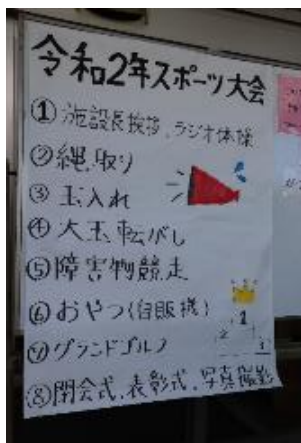 令和2年スポーツ大会
①施設長挨拶、ラジオ体操
②縄取り
③玉入れ
④大玉転がし
⑤障害物競走
⑥おやつ(自販機)
⑦グランドゴルフ
⑧閉会式、表彰式、写真撮影
1
2